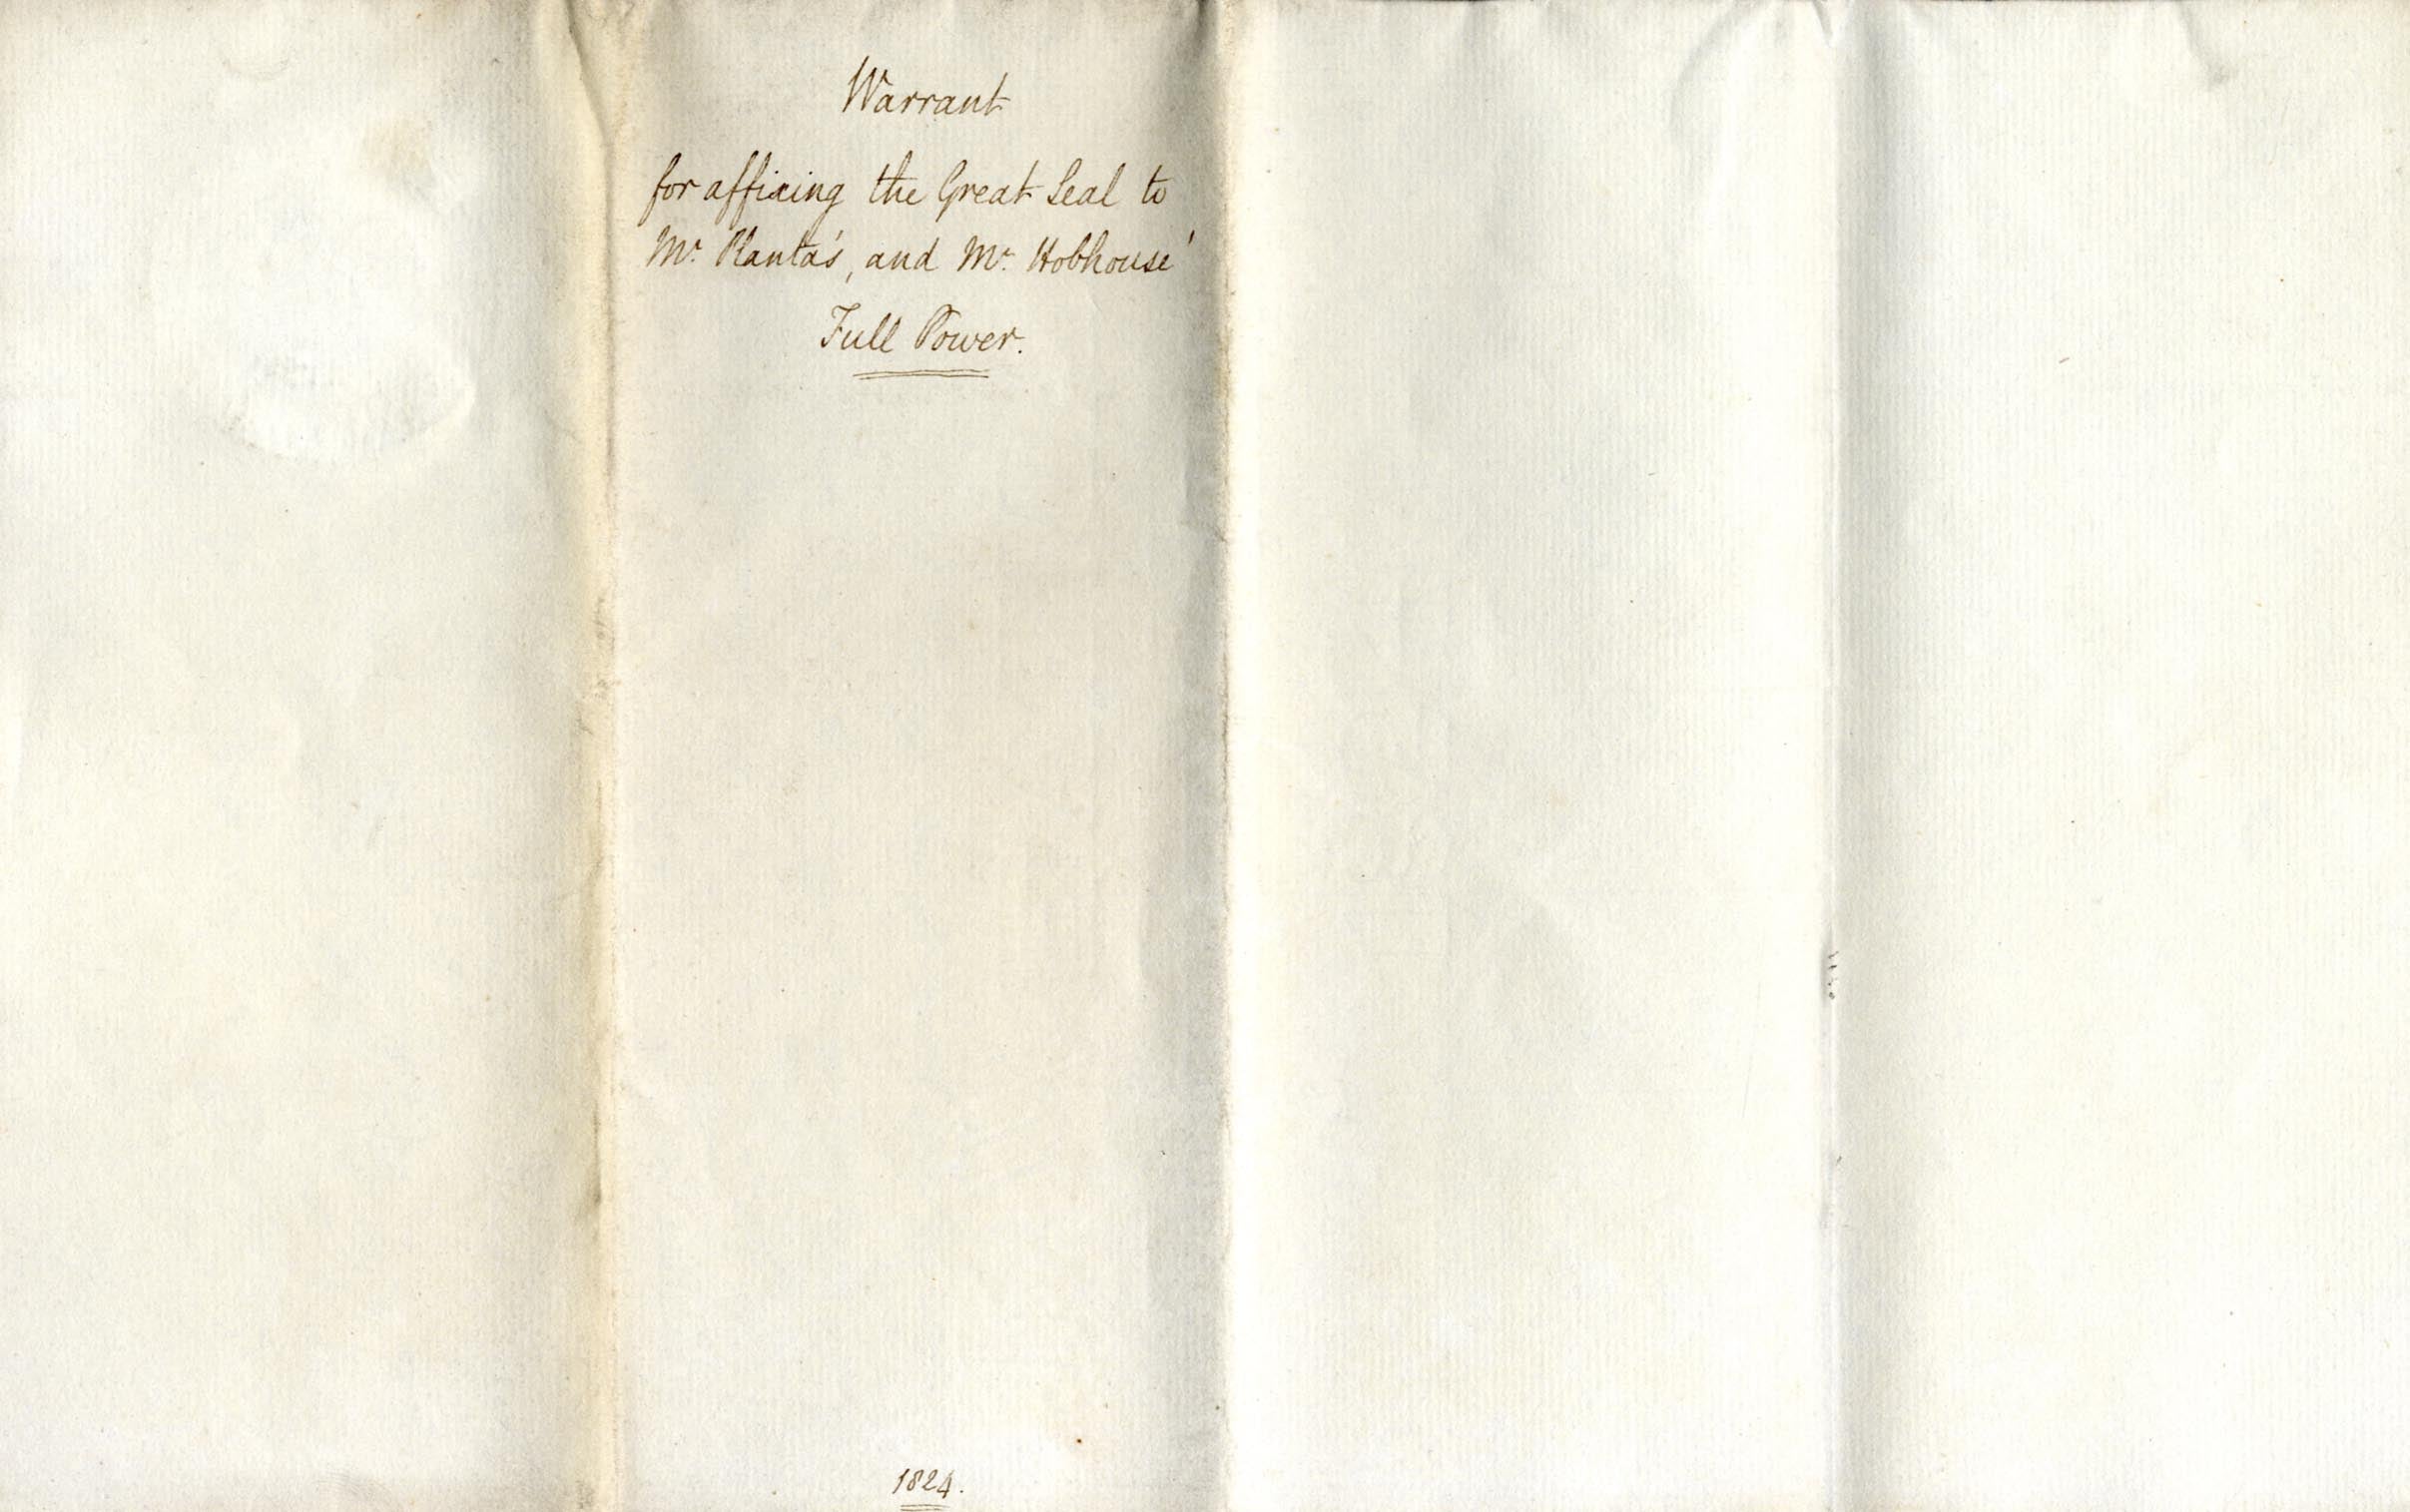 Warrant
for affixing the Great Seal to
Mr. Planta's, and Mr. Hobhouse'
Full Power.
1824.